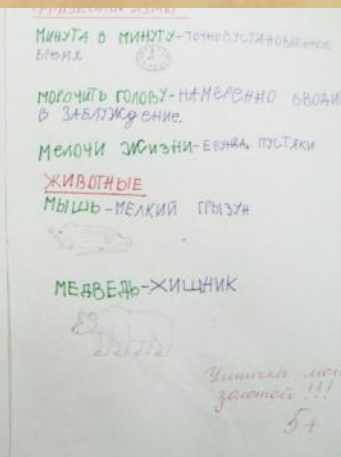 ФРАЗЕОЛОГИЗМЫ
МИНУТА В МИНУТУ-ТОЧНО В УСТАНОВЛЕННОЕ
ВРЕМЯ
МОРОЧИТЬ ГОЛОВУ-НАМЕРЕННО ВВОДИ
В ЗАБЛУЖДЕНИЕ.
МЕЛОЧИ ЖИЗНИ-ЕРУНДА, ПУСТЯКИ
ЖИВОТНЫЕ
МЫШЬ-МЕЛКИЙ ГРЫЗУН
МЕДВЕДЬ-ХИЩНИК
Умничка моя
золотой!!!
5+